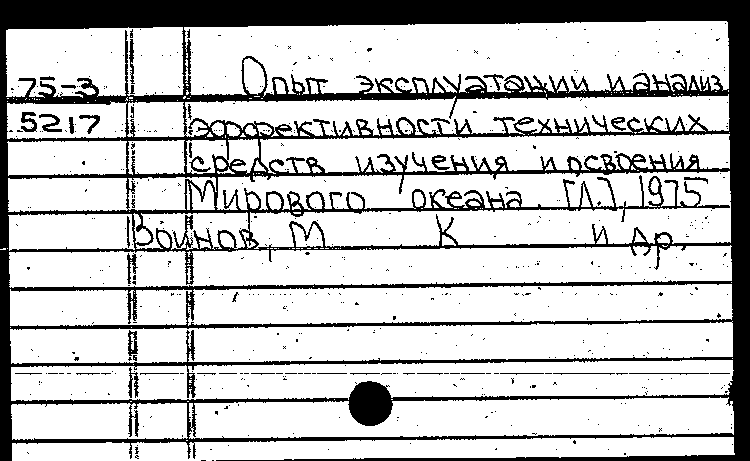 75-3 Опыт эксплуатации и анализ
5217 эффективности технических
средств изучения и освоения
Мирового океана. [Л.], 1975
Воинов, М К и др.